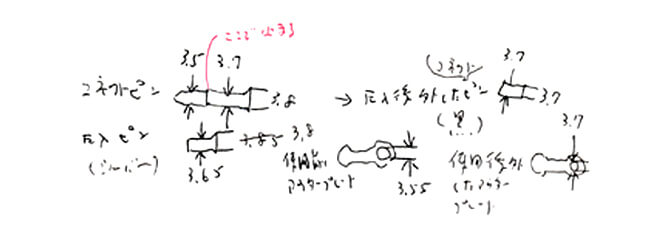 ここで必ず
3.5 3.7
コネクトピン
3.8
圧入ピン
(シルバー)
3.65
3.85 3.8
使用前
アウタープレート
3.55
(コネクト)
→ 圧入後外したピン
(黒...)
3.7
3.7
使用後外
したアウター
プレート
3.7